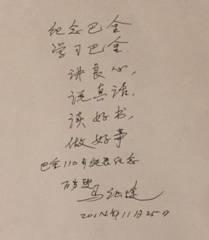 纪念巴金
学习巴金
讲良心,
说真话,
读好书,
做好事
巴金110年诞辰纪念
马
2014年11月25日